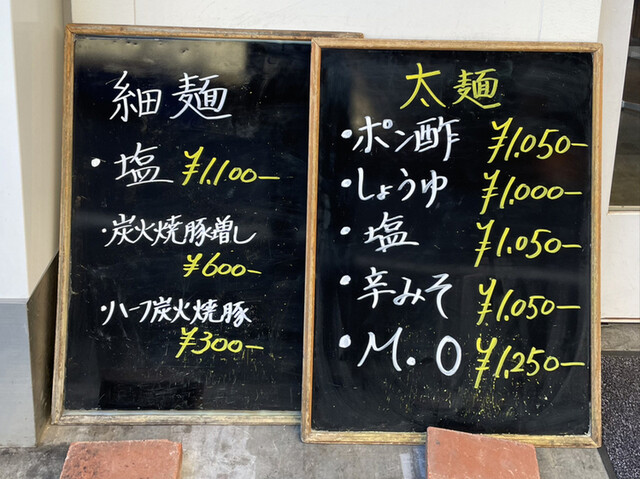 細麺
・塩 ¥1,100−
・炭火焼豚増し
¥600−
・ハーフ炭火焼豚
¥300−
太麺
・ポン酢 ¥1,050−
・しょうゆ ¥1,000−
・塩 ¥1,050−
・辛みそ ¥1,050−
・M.O ¥1,250−